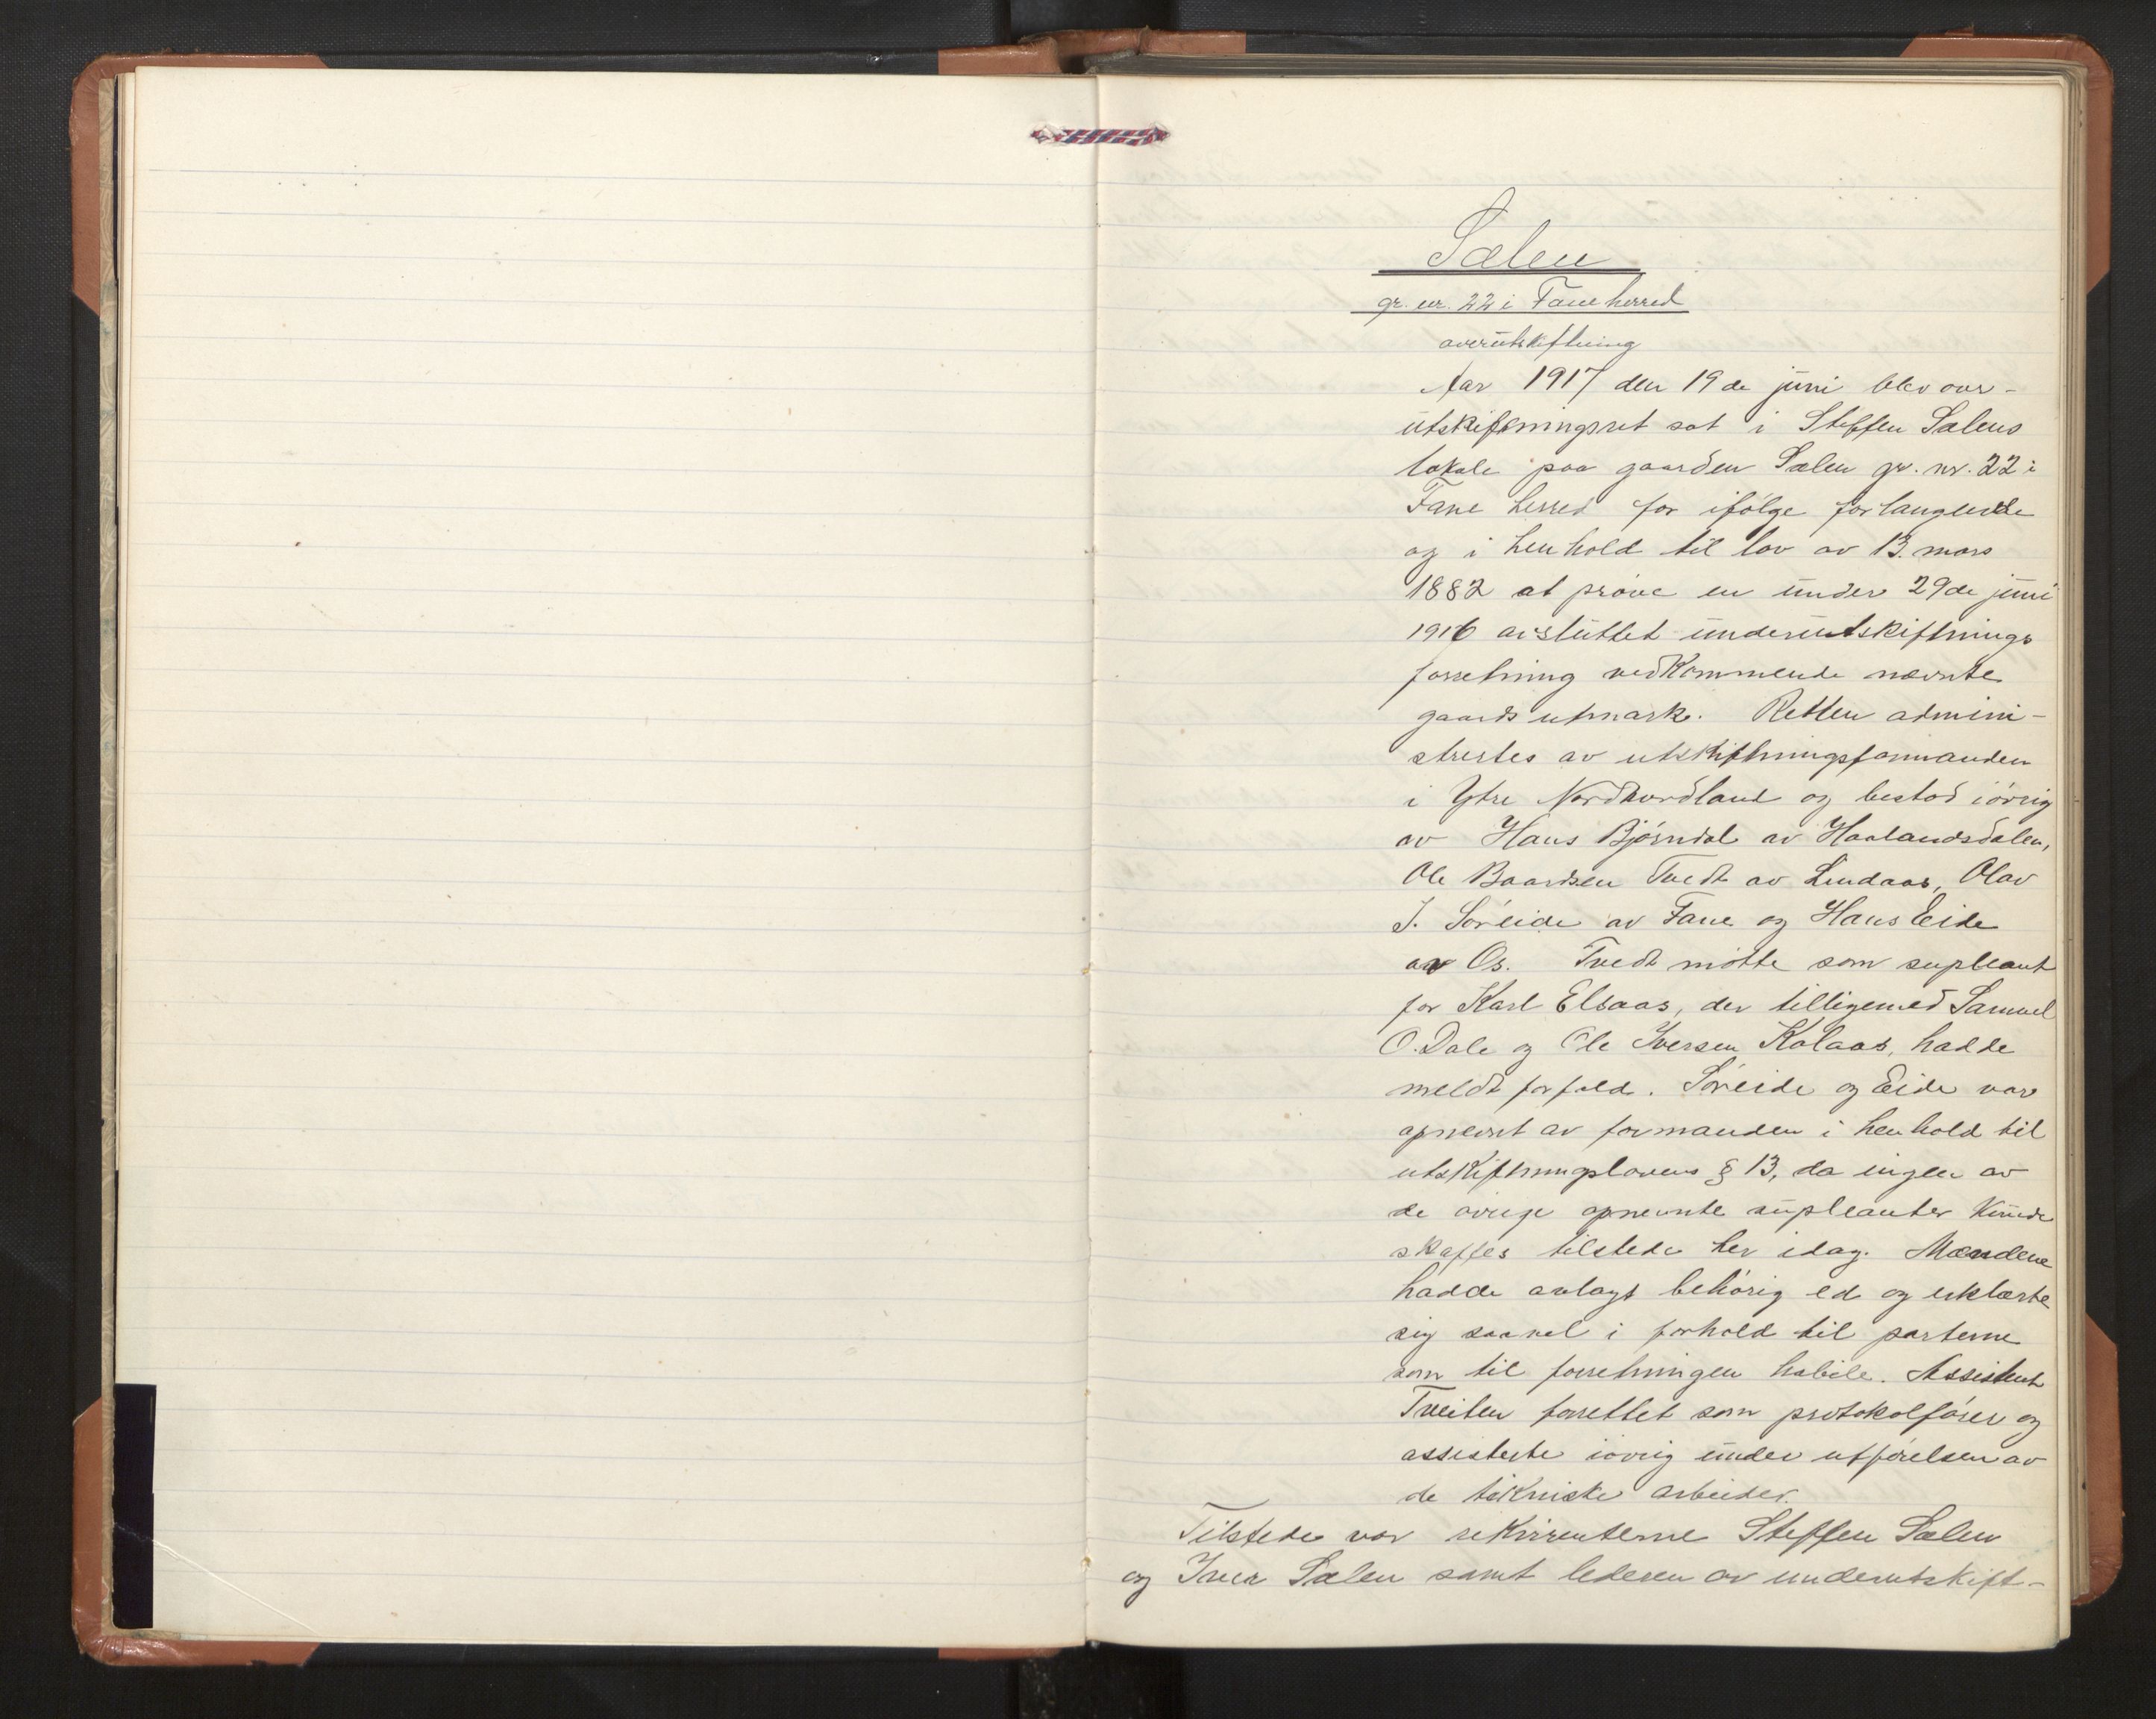 Sælen
gr. nr. 22 i Fane herred
overutskiftning
Aar 1917 den 19de juni blev over-
utskiftningsret sat i Steffen Sælens
lokale paa gaarden Sælen gr. nr. 22 i
Fane herred for ifølge forlangende
og i henhold til lov av 13. mars
1882 at prøve en under 29de juni
1916 avsluttet underutskiftnings
forretning vedkommende nævnte
gaards utmark. Retten admini-
strertes av utskiftningsformanden
i Ytre Nordhordland og bestod iøvrig
av Hans Bjørndal av Haalandsdalen,
Ole Baardsen Tvedt av Lindaas, Olav
J. Søreide av Fane og Hans Eide
av Os. Tvedt møtte som supleant
for Karl Elsaas, der tilligemed Samuel
O. Dale og Ole Iversen Kolaas, hadde
meldt forfald. Søreide og Eide var
opnevnt av formanden i henhold til
utskiftningslovens § 13, da ingen av
de øvrige opnevnte supleanter kunde
skaffes tilstede her idag. Mændene
hadde avlagt behørig ed og erklærte
sig saavel i forhold til parterne
som til forretningen habile. Assistent
Tveiten forrettet som protokolfører og
assisterte iøvrig under utførelsen av
de tekniske arbeider.
Tilstede var rekvirenterne Steffen Sælen
og Iver Sælen samt lederen av underutskift-